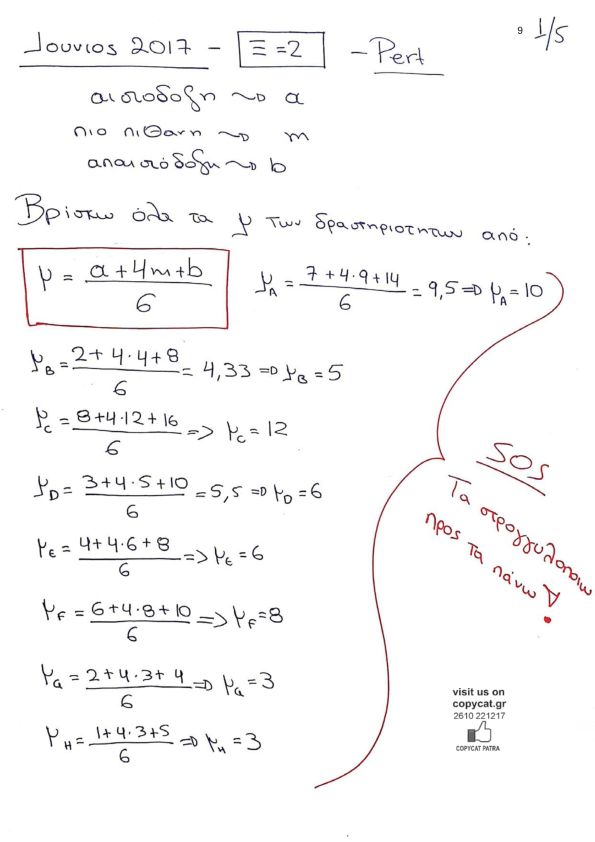 9 1/5
Ιουνιος 2017 - Ξ=2 - Pert
αισιοδοξη ~> a
πιο πιθανη ~> m
απαισιόδοξη ~> b
Βρίσκω όλα τα μ των δραστηριοτητων από:
μ = (a+4m+b)/6 μ_A = (7+4·9+14)/6 = 9,5 => μ_A = 10
μ_B = (2+4·4+8)/6 = 4,33 => μ_B = 5
μ_c = (8+4·12+16)/6 => μ_c = 12
μ_D = (3+4·5+10)/6 = 5,5 => μ_D = 6
μ_E = (4+4·6+8)/6 => μ_E = 6
μ_F = (6+4·8+10)/6 => μ_F = 8
μ_G = (2+4·3+4)/6 => μ_G = 3
μ_H = (1+4·3+5)/6 => μ_H = 3
SOS
Τα στρογγυλοποιω
προς τα πάνω!
visit us on
copycat.gr
2610 221217
COPYCAT PATRA